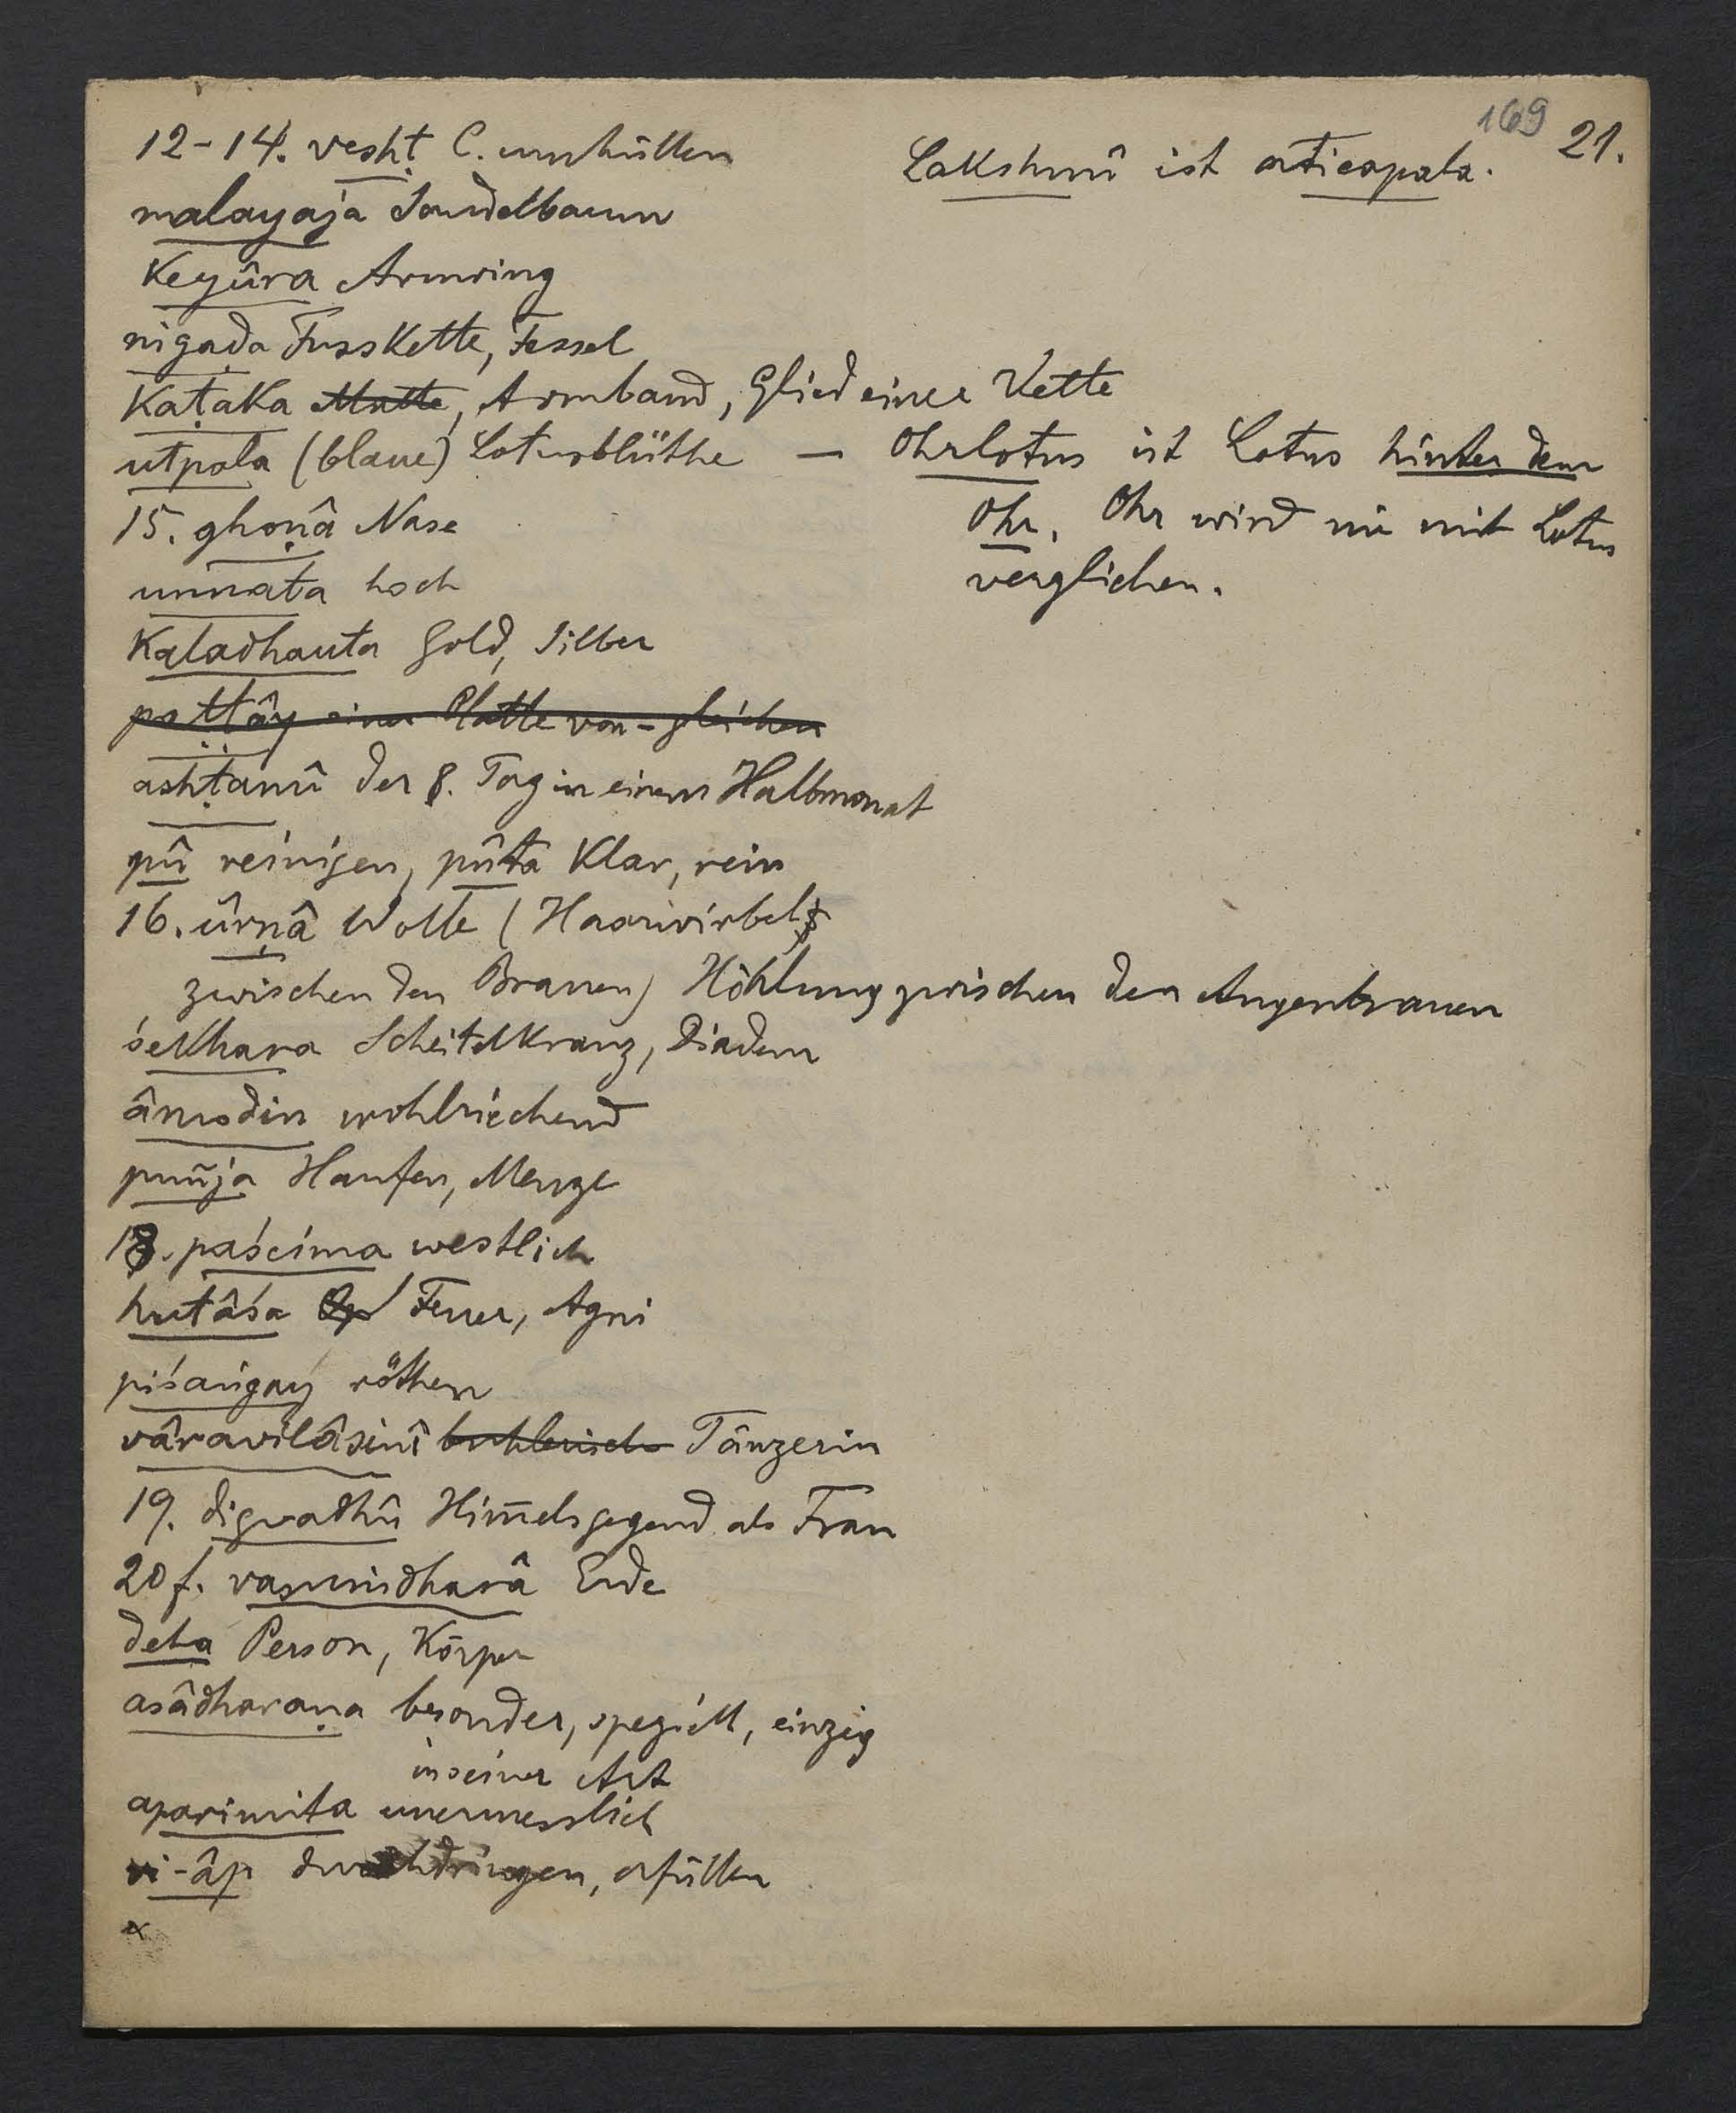 169
21.
12-14. vesḥṭ C. umhüllen
Lakshmî ist aticapala.
malayaja Sandelbaum
Keyûra Armring
nigaḍa Fusskette, Fessel
Kaṭaka Matte, Armband, Glied einer Kette
utpala (blaue) Lotusblüthe — Ohrlotus ist Lotus hinter dem
15. ghoṇâ Nase
Ohr. Ohr wird nie mit Lotus
unnata hoch
verglichen.
Kaladhauta Gold, Silber
paṭṭây einer Platte von - gleichen
ashṭamî der 8. Tag in einem Halbmonat
pû reinigen, pûta klar, rein
16. ûrṇâ Wolle (Haarwirbel
zwischen den Brauen) Höhlung zwischen den Augenbrauen
śekhara Scheitelkranz, Diadem
âmodin wohlriechend
puñja Haufen, Menge
18. paścima westlich
hutâśa Feuer, Agni
piśaṅgay röthen
vâravilâsinî buhlerisch Tänzerin
19. digvadhû Him̄elsgegend als Frau
20f. vasuṃdharâ Erde
deha Person, Körper
asâdharaṇa besonder, speziell, einzig
in seiner Art
aparimita unermesslich
vi-âp durchdringen, erfüllen